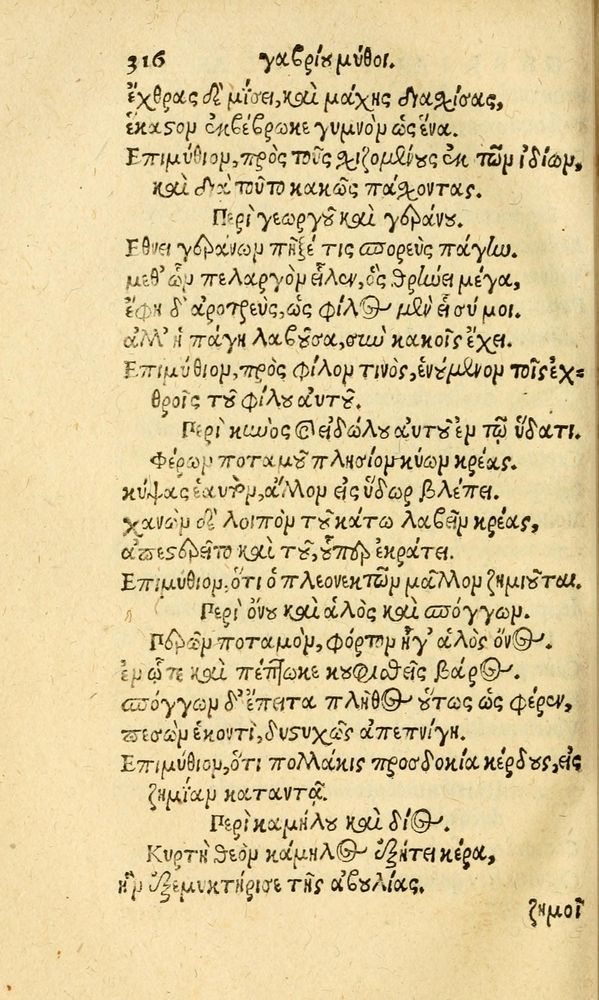 316 γαβρίου μῦθοι.
ἔχθρας δὲ μίσει, καὶ μάχης διαχίσας,
ἕκαστον ἐκβέβρωκε γυμνὸν ὡς ἕνα.
Επιμύθιον, πρὸς τοὺς χιζομένους ἐκ τῶν ἰδίων,
καὶ διὰ τοῦτο κακῶς πάχοντας.
Περὶ γεωργοῦ καὶ γεράνου.
Εθνει γεράνων πῆξέ τις σπορεὺς πάγην.
μεθ' ὧν πελαργὸν εἷλεν, ὃς θρήνει μέγα,
ἔφη δ' ἀροτρεὺς, ὡς φίλος μὲν εἶ σύ μοι.
ἀλλ' ἡ πάγη λαβοῦσα, σὺν κακοῖς ἔχει.
Επιμύθιον, πρὸς φίλον τινὸς, ἑνούμενον τοῖς ἐχ=
θροῖς τοῦ φίλου αὐτοῦ.
Περὶ κυνὸς καὶ εἰδώλου αὐτοῦ ἐν τῷ ὕδατι.
Φέρων ποταμοῦ πλησίον κύων κρέας.
κύψας ἑαυτὸν, ἄλλον εἰς ὕδωρ βλέπει.
χανὼν δὲ λοιπὸν τοῦ κάτω λαβεῖν κρέας,
ἀπεστρεῖτο καὶ τοῦ, οὗπερ ἐκράτει.
Επιμύθιον, ὅτι ὁ πλεονεκτῶν μᾶλλον ζημιοῦται.
Περὶ ὄνου καὶ ἁλὸς καὶ σπόγγων.
Περῶν ποταμὸν, φόρτον ἦγ' ἁλὸς ὄνος.
ἐν ᾧτε καὶ πέπτωκε κουφισθεὶς βάρος.
σπόγγων δ' ἔπειτα πλῆθος οὕτως ὡς φέρεν,
πεσὼν ἑκοντὶ, δυστυχῶς ἀπεπνίγη.
Επιμύθιον, ὅτι πολλάκις προσδοκία κέρδους, εἰς
ζημίαν καταντᾷ.
Περὶ καμήλου καὶ διός.
Κυρτὴ θεὸν κάμηλος ἐξῄτει κέρα,
ἣν ἐξεμυκτήρισε τῆς ἀβουλίας.
ζημοῖ